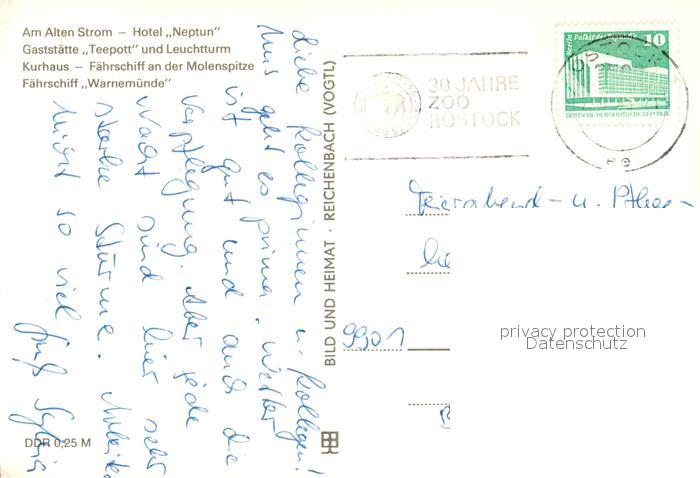 Am Alten Strom – Hotel „Neptun“
Gaststätte „Teepott“ und Leuchtturm
Kurhaus – Fährschiff an der Molenspitze
Fährschiff „Warnemünde“
Liebe Kolleginnen u. Kollegen!
Uns geht es prima. Wetter
ist gut und auch die
Verpflegung. Aber jede
Nacht sind hier sehr
starke Stürme.
nicht so viel
DDR 0,25 M
BILD UND HEIMAT · REICHENBACH (VOGTL)
30 JAHRE
ZOO
ROSTOCK
10
DEUTSCHE DEMOKRATISCHE REPUBLIK
Feierabend- u. Pflege-
9901
privacy protection
Datenschutz